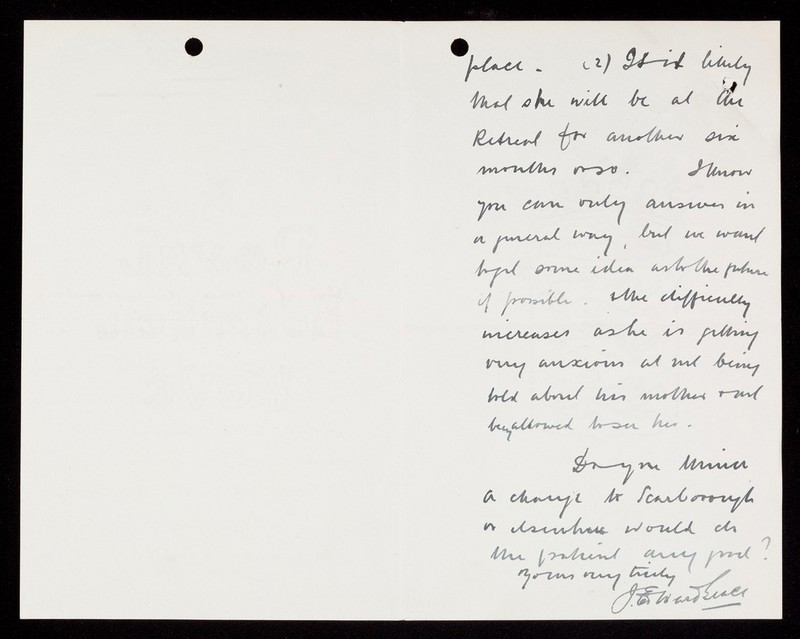 place. (2) Is it likely
that she will be at the
Retreat for another six
months or so. I know
you can only answer in
a general way, but we want
to get some idea as to the future
if possible. The difficulty
increases as he is getting
very anxious at not being
told about his mother & not
being allowed to see her.
Do you think
a change to Scarborough
or elsewhere would do
the patient any good?
Yours very truly
J. Edward